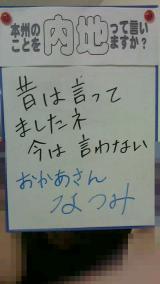 本州の
ことを
内地
って言い
ますか?
昔は言って
ましたネ
今は言わない
おかあさん
なつみ